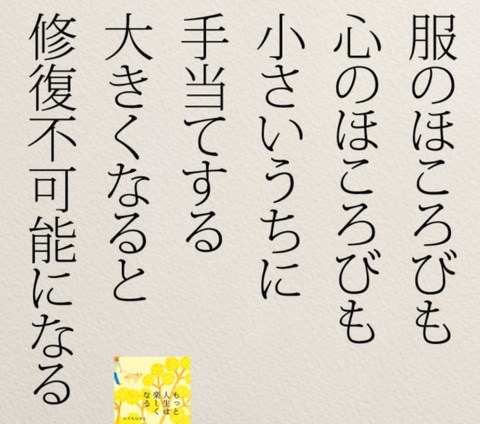 服のほころびも
心のほころびも
小さいうちに
手当てする
大きくなると
修復不可能になる
もっと
人生は
楽しく
なる